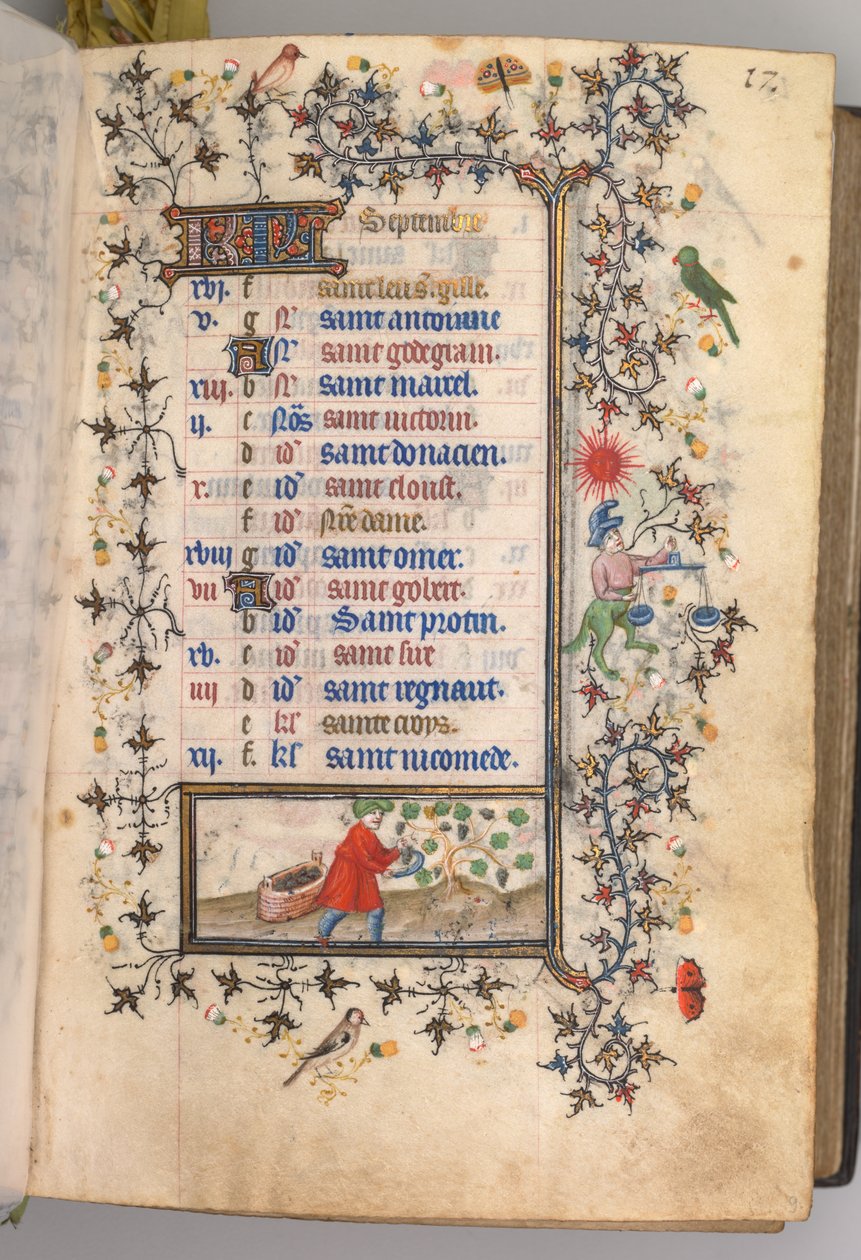 17.
KL Septembre
xvj. f saint leu s. gille.
v. g Nꝰ saint antoinne
A Nꝰ saint godegrain.
xiij. b Nꝰ saint maixel.
ij. c. Nōs saint victorin.
d id' saint donacien.
x. e id' saint cloust.
f id' Nr̄e dame.
xviij g id' saint omer.
vii A id' saint gobert.
b id' Saint protin.
xv. c id' saint sire
iiij d id' saint regnaut.
e kl' sainte croys.
xij. f. kl' saint nicomede.
9